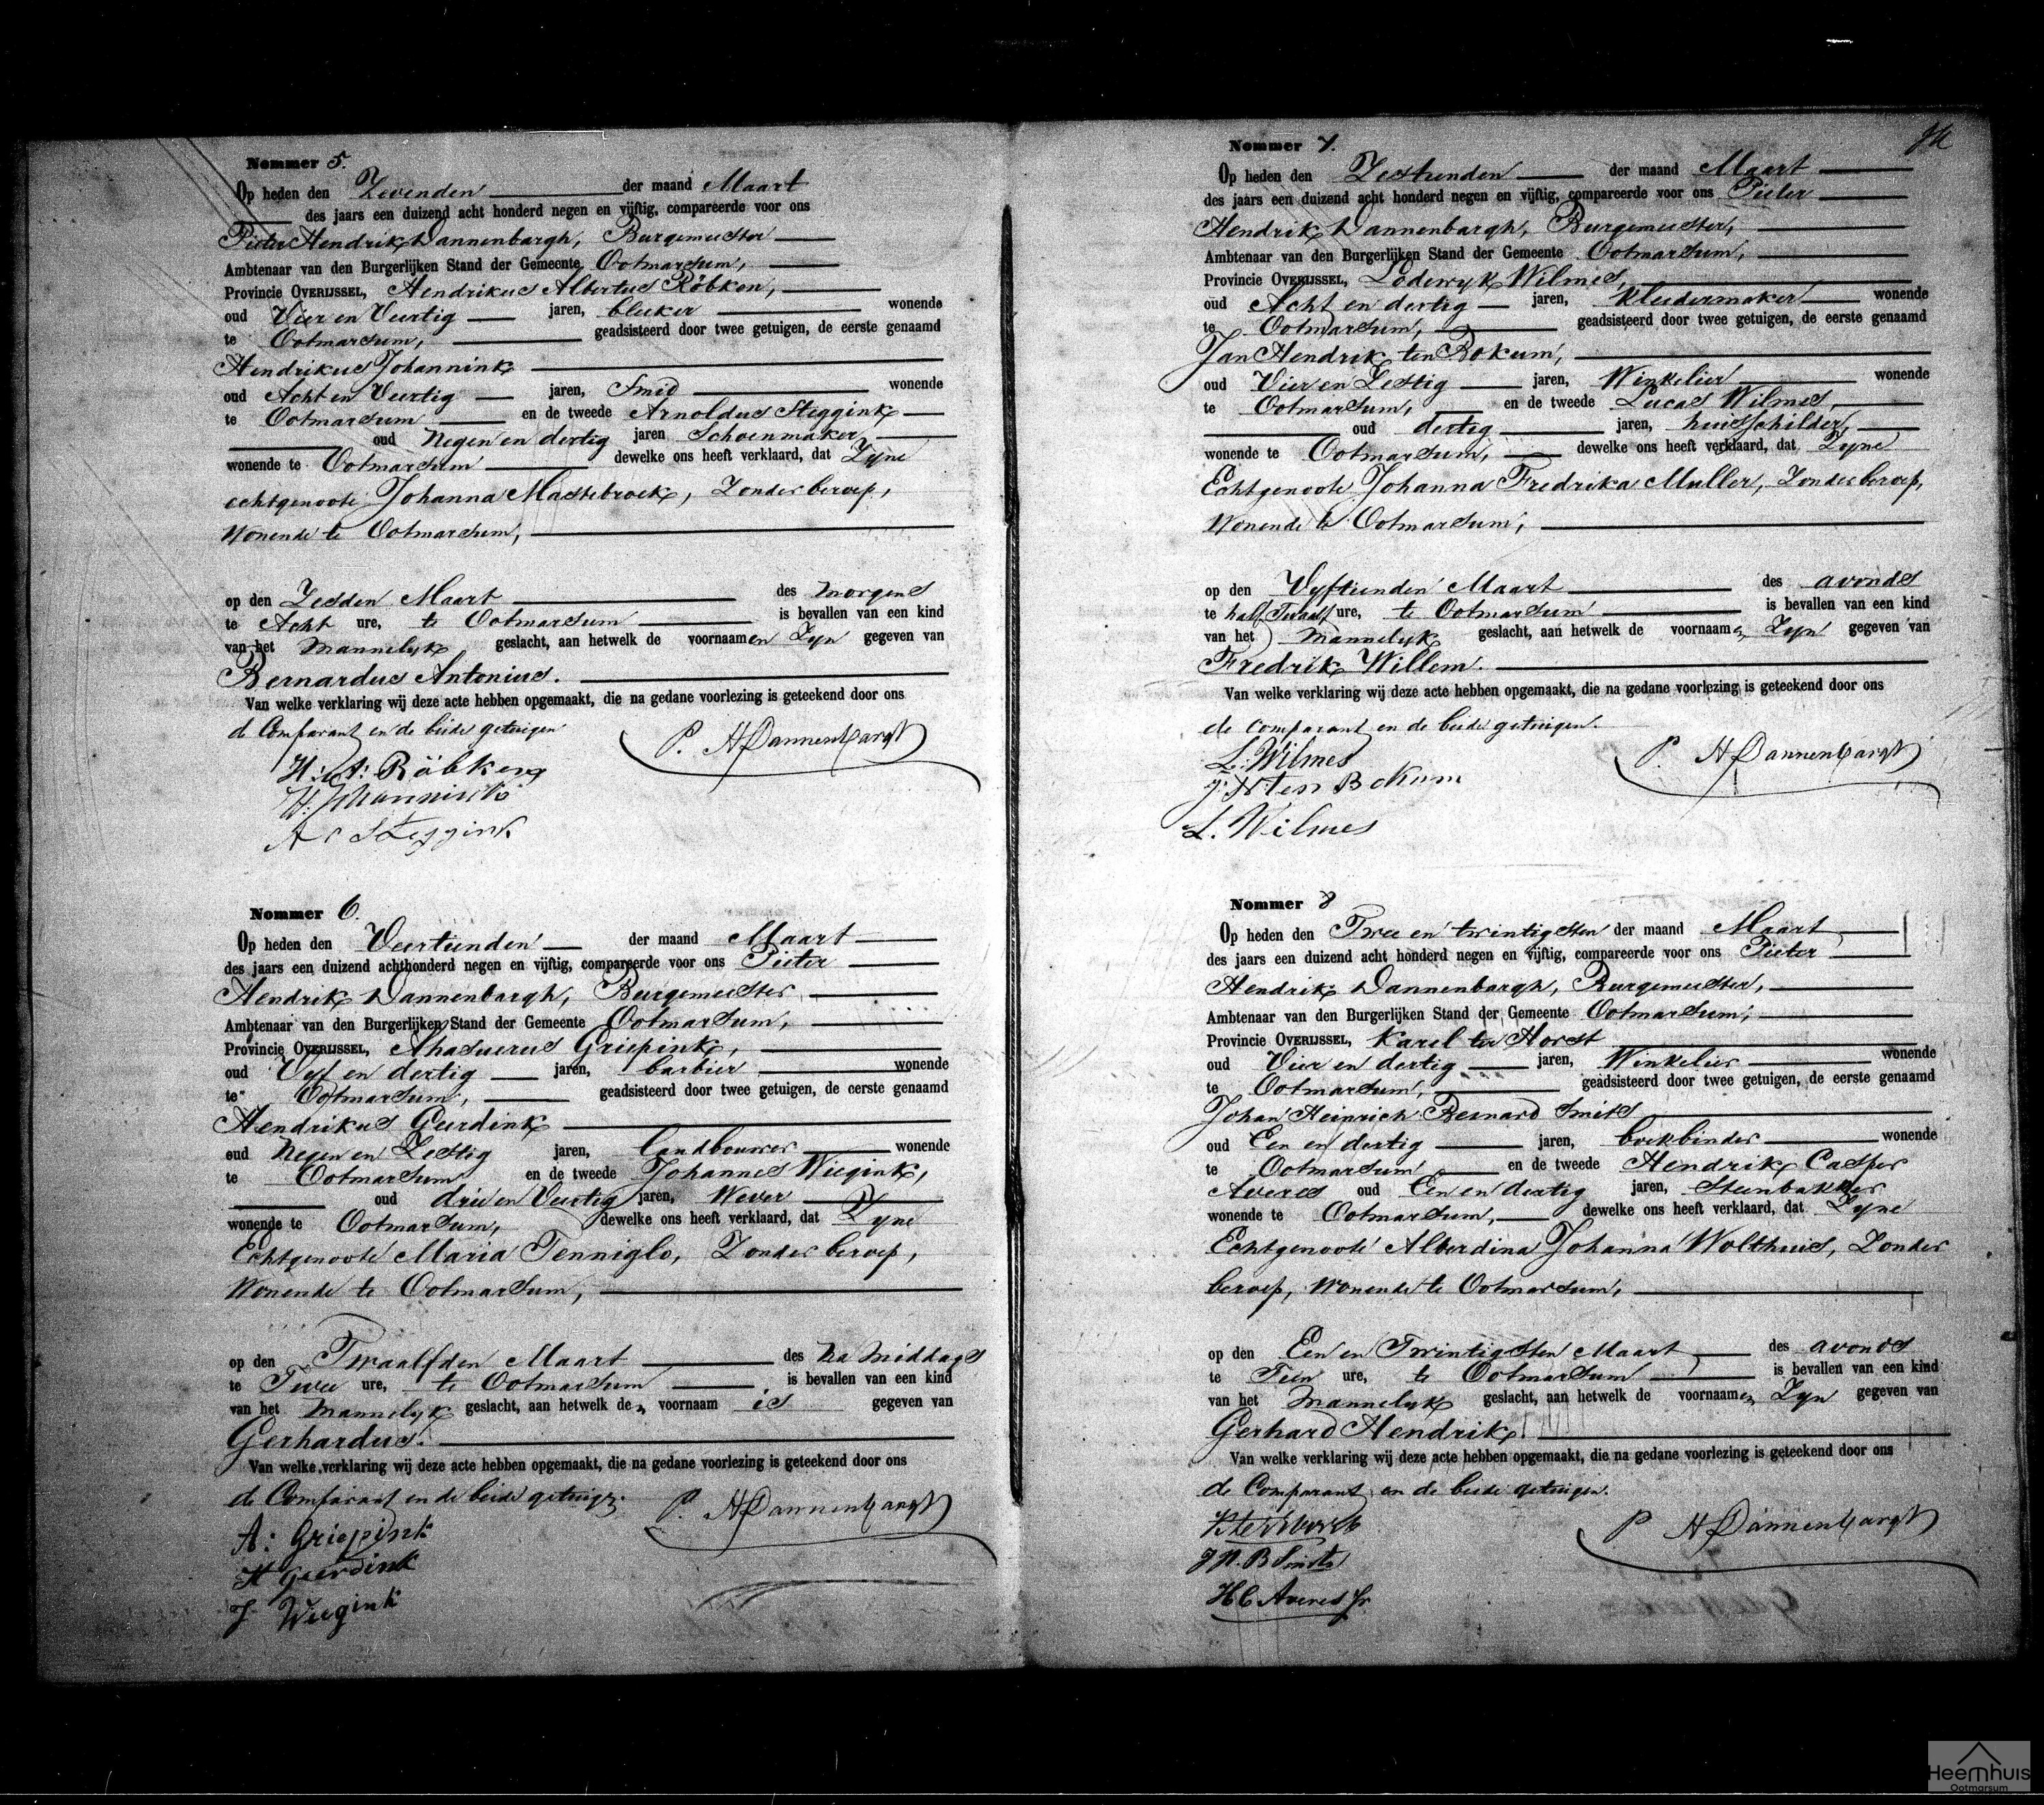 Nommer 5.
Op heden den Zevenden der maand Maart
des jaars een duizend acht honderd negen en vijftig, compareerde voor ons
Pieter Hendrik Dannenbargh, Burgemeester
Ambtenaar van den Burgerlijken Stand der Gemeente Ootmarsum,
Provincie OVERIJSSEL, Hendrikus Albertus Röbken,
oud Vier en Veertig jaren, bleeker wonende
te Ootmarsum, geadsisteerd door twee getuigen, de eerste genaamd
Hendrikus Johannink
oud Acht en Veertig jaren, Smid wonende
te Ootmarsum en de tweede Arnoldus Steggink
oud Negen en dertig jaren Schoenmaker
wonende te Ootmarsum dewelke ons heeft verklaard, dat Zyne
echtgenoote Johanna Mastebroek, Zonder beroep,
Wonende te Ootmarsum,
op den Zesden Maart des morgens
te Acht ure, te Ootmarsum is bevallen van een kind
van het Mannelyk geslacht, aan hetwelk de voornaamen Zyn gegeven van
Bernardus Antonius.
Van welke verklaring wij deze acte hebben opgemaakt, die na gedane voorlezing is geteekend door ons
de Comparant en de beide getuigen
P. H Dannenbargh
H: A: Röbken
H. Johannink
Ar Steggink
Nommer 6.
Op heden den Veertienden der maand Maart
des jaars een duizend achthonderd negen en vijftig, compareerde voor ons Pieter
Hendrik Dannenbargh, Burgemeester
Ambtenaar van den Burgerlijken Stand der Gemeente Ootmarsum,
Provincie OVERIJSSEL, Ahasuerus Griepink,
oud Vyf en dertig jaren, barbier wonende
te Ootmarsum, geadsisteerd door twee getuigen, de eerste genaamd
Hendrikus Geerdink
oud Negen en Zestig jaren, landbouwer wonende
te Ootmarsum en de tweede Johannes Wiegink,
oud drie en Veertig jaren, Wever
wonende te Ootmarsum, dewelke ons heeft verklaard, dat Zyne
Echtgenoote Maria Tenniglo, Zonder beroep,
Wonende te Ootmarsum,
op den Twaalfden Maart des Na Middags
te Twee ure, te Ootmarsum is bevallen van een kind
van het Mannelyk geslacht, aan hetwelk de voornaam is gegeven van
Gerhardus.
Van welke verklaring wij deze acte hebben opgemaakt, die na gedane voorlezing is geteekend door ons
de Comparant en de beide
P. H Dannenbargh
A: Griepink
H Geerdink
J Wiegink
Nommer 7.
Op heden den Zestienden der maand Maart
des jaars een duizend acht honderd negen en vijftig, compareerde voor ons Pieter
Hendrik Dannenbargh, Burgemeester,
Ambtenaar van den Burgerlijken Stand der Gemeente Ootmarsum,
Provincie OVERIJSSEL, Lodewyk Wilmes,
oud Acht en dertig jaren, kleedermaker wonende
te Ootmarsum, geadsisteerd door twee getuigen, de eerste genaamd
Jan Hendrik ten Bokum,
oud Vier en Zestig jaren, Winkelier wonende
te Ootmarsum, en de tweede Lucas Wilmes,
oud dertig jaren, huisschilder,
wonende te Ootmarsum, dewelke ons heeft verklaard, dat Zyne
Echtgenoote Johanna Fredrika Muller, Zonder beroep,
Wonende te Ootmarsum,
op den Vyftienden Maart des avonds
te half Twaalf ure, te Ootmarsum is bevallen van een kind
van het Mannelyk geslacht, aan hetwelk de voornaamen Zyn gegeven van
Fredrik Willem.
Van welke verklaring wij deze acte hebben opgemaakt, die na gedane voorlezing is geteekend door ons
de comparant en de beide getuigen.
P. H Dannenbargh
L. Wilmes
J: H ten Bokum
L. Wilmes
Nommer 8
Op heden den Twee en twintigsten der maand Maart
des jaars een duizend acht honderd negen en vijftig, compareerde voor ons Pieter
Hendrik Dannenbargh, Burgemeester,
Ambtenaar van den Burgerlijken Stand der Gemeente Ootmarsum,
Provincie OVERIJSSEL, Karel ter Horst
oud Vier en dertig jaren, Winkelier wonende
te Ootmarsum, geadsisteerd door twee getuigen, de eerste genaamd
Johan Heinrich Bernard Smits
oud Een en dertig jaren, boekbinder wonende
te Ootmarsum en de tweede Hendrik Casper
Averes oud Een en dertig jaren, Steenbakker
wonende te Ootmarsum, dewelke ons heeft verklaard, dat Zyne
Echtgenoote Alberdina Johanna Wolthuis, Zonder
beroep, Wonende te Ootmarsum,
op den Een en Twintigsten Maart, des avonds
te Tien ure, te Ootmarsum is bevallen van een kind
van het Mannelyk geslacht, aan hetwelk de voornaamen Zyn gegeven van
Gerhard Hendrik
Van welke verklaring wij deze acte hebben opgemaakt, die na gedane voorlezing is geteekend door ons
de Comparant en de beide getuigen.
P H Dannenbargh
K ter Horst
J H. B Smits
H C Averes Jr
Heemhuis
Ootmarsum